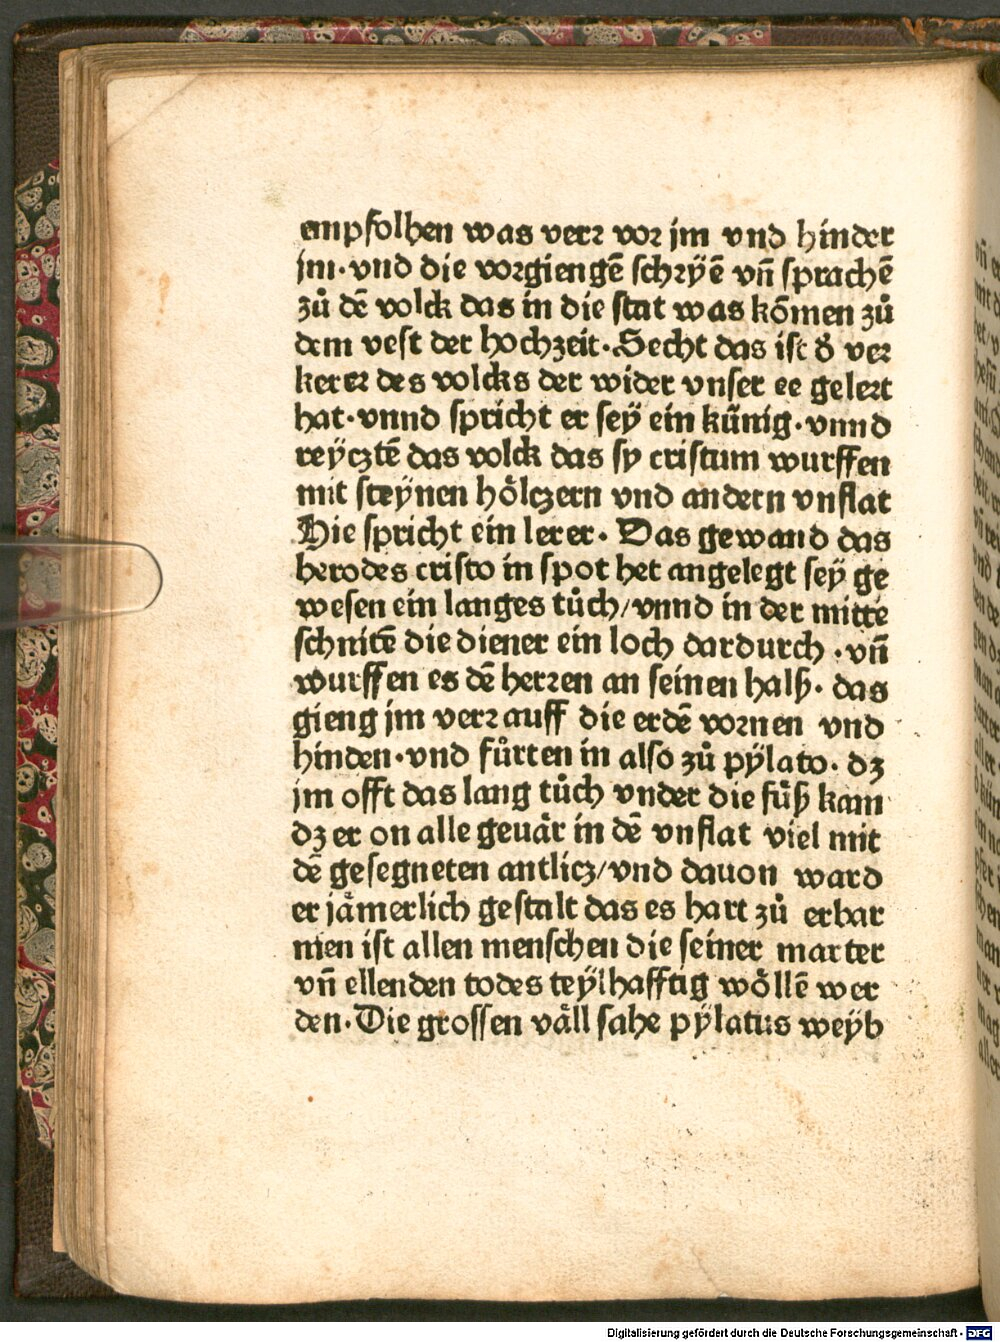 empfolhen was verꝛ voꝛ jm vnd hinder
jm·vnd die vorgiengē schryͤē vn̄ sprachē
zuͦ dē volck das in die stat was kōmen zuͦ
dem vest der hochzeit·Secht das ist d̓ ver
kerer des volcks der wider vnser ee gelert
hat·vnnd spricht er sey ein künig·vnnd
reÿcztē das volck das sy cristum wurffen
mit steÿnen hoͤlczern vnd andern vnflat
Hie spricht ein lerer· Das gewand das
herodes cristo in spot het angelegt sey ge
wesen ein langes tuͦch/vnnd in der mitte
schnitē die diener ein loch dardurch ·vn̄
wurffen es dē herꝛen an seinen halß· das
gieng jm verꝛ auff die erdē vornen vnd
hinden·vnd fuͦrten in also zuͦ pÿlato· dz
jm offt das lang tuͦch vnder die fuͤß kam
dz er on alle geuaͤr in dē vnflat viel mit
dē gesegneten antlicz/vnd dauon ward
er jaͤmerlich gestalt das es hart zuͦ erbar
men ist allen menschen die seiner marter
vn̄ ellenden todes teÿlhafftig woͤllē wer
den·Die grossen vaͤll sahe pÿlatus weÿb
Digitalisierung gefördert durch die Deutsche Forschungsgemeinschaft - DFG